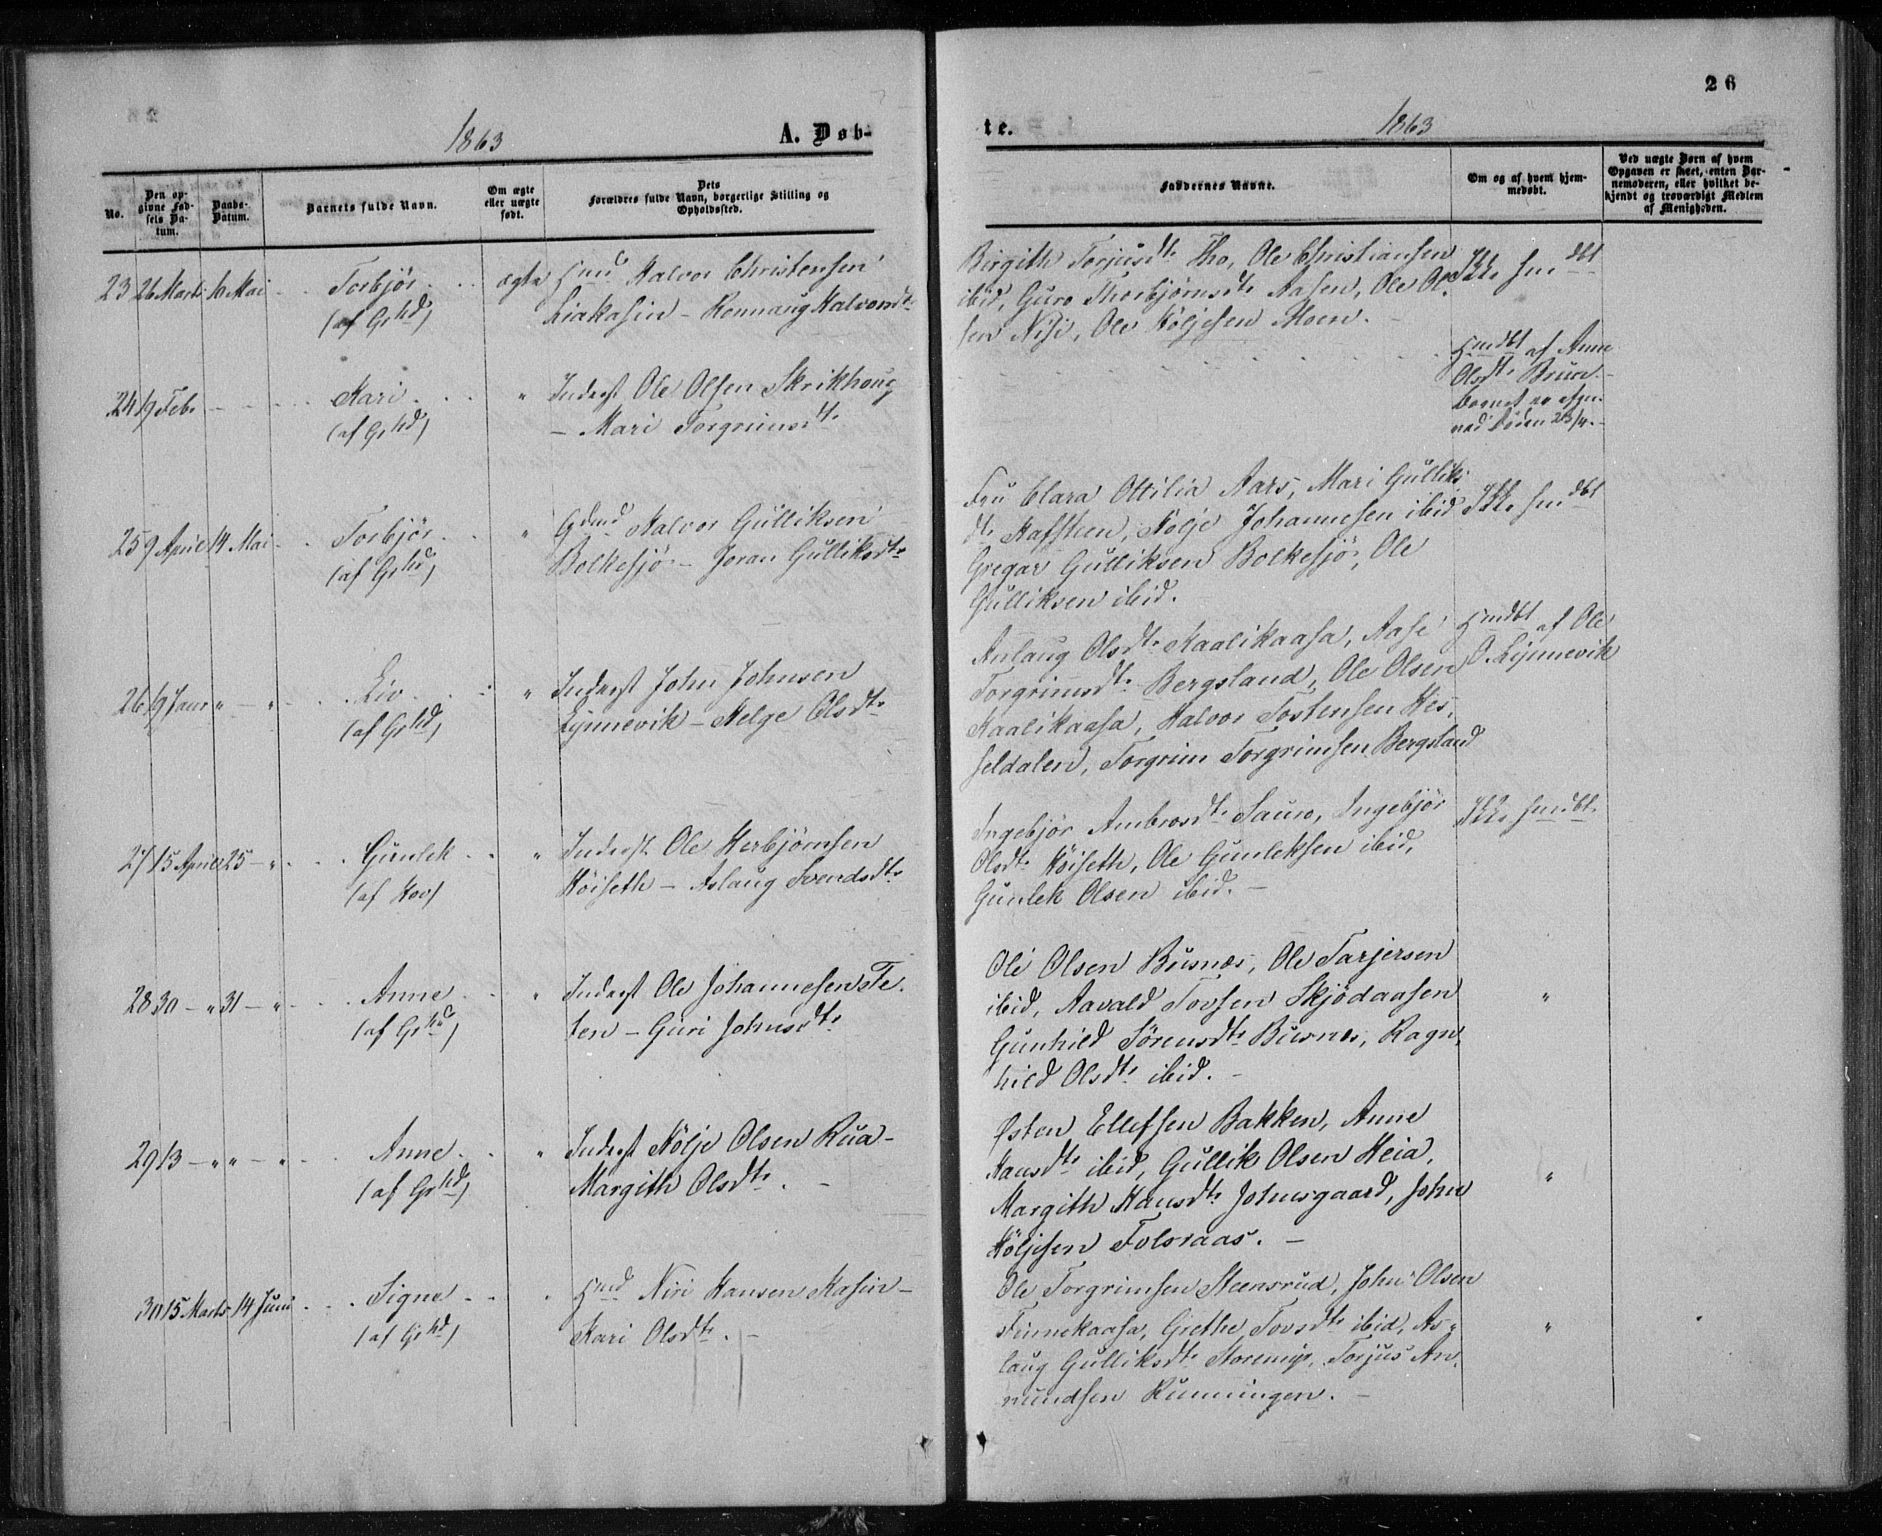 26
1863 A. Døb-
te. 1863
No.
Den op-
givne Fød-
sels Da-
tum.
Daabs-
Datum.
Barnets fulde Navn.
Om ægte
eller uægte
født.
Dets
Forældres fulde Navn, borgerlige Stilling og
Opholdssted.
Faddernes Navne.
Om og af hvem hjem-
medøbt.
Ved uægte Børn af hvem
Opgaven er skeet, enten Bar-
nemoderen, eller hvilket be-
kjendt og troværdigt Medlem
af Menigheden.
23 26 Marts 10 Mai Torbjør ægte Hmd Halvor Christensen
(af Grhd) Liakasin - Rønnaug Halvorsdtr
Birgith Torjusdtr Tho, Ole Christiansen
ibid, Guro Thorbjørnsdtr Aasen, Ole Ol-
sen Nisi, Ole Høljesen Moen. -
Ikke hmdbt
24 19 Febr - Kari " Inderst Ole Olsen Skrikhoug
(af Grhd) - Mari Torgrimsdtr
Hmdbt af Anne
Olsdtr Bruen.
Barnet er afgn.
ved Døden 23/4. -
25 9 April 14 Mai Torbjør " Gdmd Halvor Gulliksen
(af Grhd) Bolkesjø - Jøran Gulliksdtr
Fru Clara Ottilia Aars, Mari Gulliks-
dtr Haffsten, Hølje Johannesen ibid
Gregar Gulliksen Bolkesjø, Ole
Gulliksen ibid.
Ikke hmdbt
26 19 Janr " - " - Liv " Inderst John Johnsen
(af Grhd) Lynnevik - Helge Olsdtr
Anlaug Olsdtr Kaalikaasa, Aase
Torgrimsdtr Bergsland, Ole Olsen
Kaalikaasa, Halvor Tostensen Hes-
seldalen, Torgrim Torgrimsen Bergsland
Hmdbt af Ole
O. Lynnevik
27 15 April 25 - " Gunlek " Inderst Ole Herbjørnsen
(af Hov) Høiseth - Aslaug Svendsdtr
Ingebjør Ambrosdtr Sauro, Ingebjør
Olsdtr Høiseth, Ole Gunleksen ibid,
Gunlek Olsen ibid. -
Ikke hmdbt.
28 30 - " 31 - " Anne " Inderst Ole Johannesen Te-
(af Grhd) ten - Guri Johnsdtr
Ole Olsen Busnes, Ole Tarjersen
ibid, Aavald Tovsen Skjødaasen
Gunhild Sørensdtr Busnes, Ragn-
hild Olsdtr ibid. -
"
29 13 - " " - " Anne " Inderst Hølje Olsen Rua -
(af Grhd) Margith Olsdtr. -
Østen Ellefsen Bakken, Anne
Hansdtr ibid, Gullik Olsen Heia,
Margith Hansdtr Johnsgaard, John
Høljesen Folsraas. -
"
30 15 Marts 14 Juni Signe " Hmd Niri Hansen Kasin -
(af Grhd) Kari Olsdtr. -
Ole Torgrimsen Steensrud, John Olsen
Finnekaasa, Grethe Tovsdtr ibid, As-
laug Gulliksdtr Storemyr, Torjus Am-
mundsen Runningen. -
"